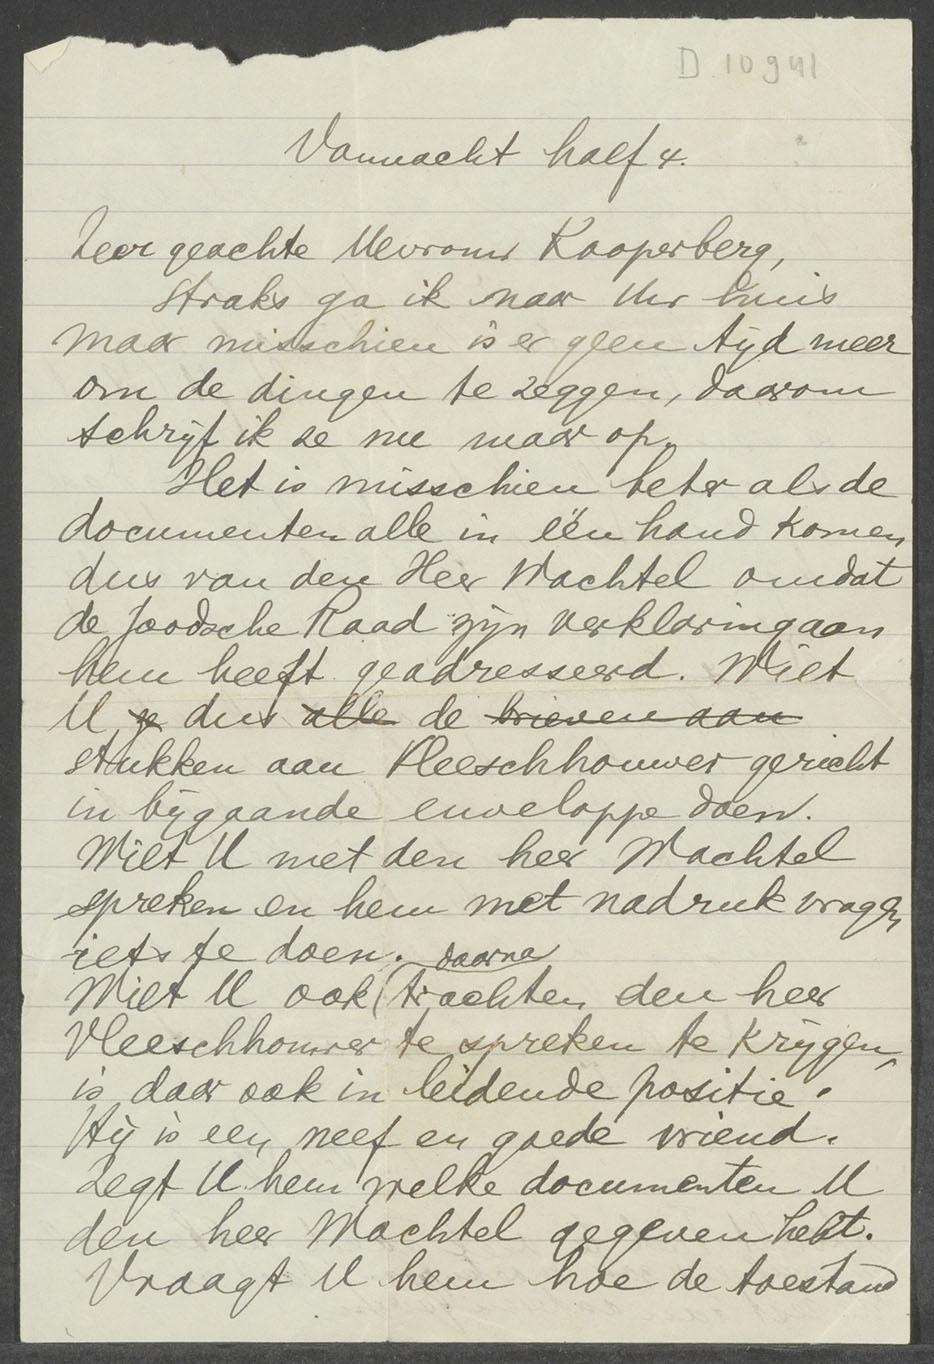 D 10941
Vannacht half 4.
Zeer geachte Mevrouw Kooperberg,
Straks ga ik naar Uw huis
maar misschien is er geen tijd meer
om de dingen te zeggen, daarom
schrijf ik ze nu maar op.
Het is misschien beter als de
documenten alle in één hand komen
dus van den Heer Wachtel omdat
de Joodsche Raad zijn verklaring aan
hem heeft geadresseerd. Wilt
U ze dus alle de brieven aan
stukken aan Vleeschhouwer gericht
in bijgaande enveloppe doen.
Wilt U met den heer Wachtel
spreken en hem met nadruk vragen
iets te doen.
daarna
Wilt U ook trachten den heer
Vleeschhouwer te spreken te krijgen,
is daar ook in leidende positie.
Hij is een neef en goede vriend.
Zegt U hem welke documenten U
den heer Wachtel gegeven hebt.
Vraagt U hem hoe de toestand